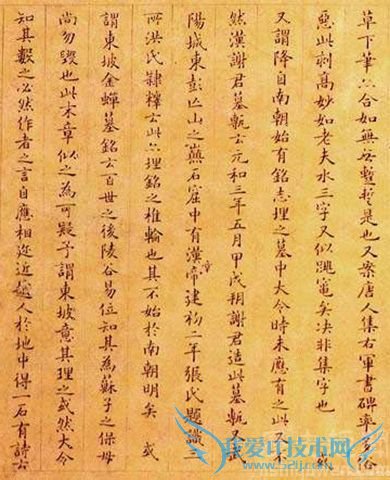 草下筆六合如無暨蹔是也又案唐人集右軍書碑率多俗
惡此刻高妙如老夫水三字又似竈矣決非集字也 或
又謂降自南朝始有銘志埋之墓中大令時未應有之此不
然漢謝君墓甎云元和三年五月甲戌朔謝君造此墓甎 武
陽城東彭亡山之巔石窟中有漢章帝建初二年張氏題識
所洪氏隸釋云此六埋銘之椎輪也其不始於南朝明矣 或
謂東坡金蟬墓銘云百世之後陵谷易位知其為蘇子之保母
尚勿毀也此末章似之為可疑予謂東坡意其理之或然大令
知其數之必然作者之言自應相近越人於地中得一石有詩云
我爱IT技术网